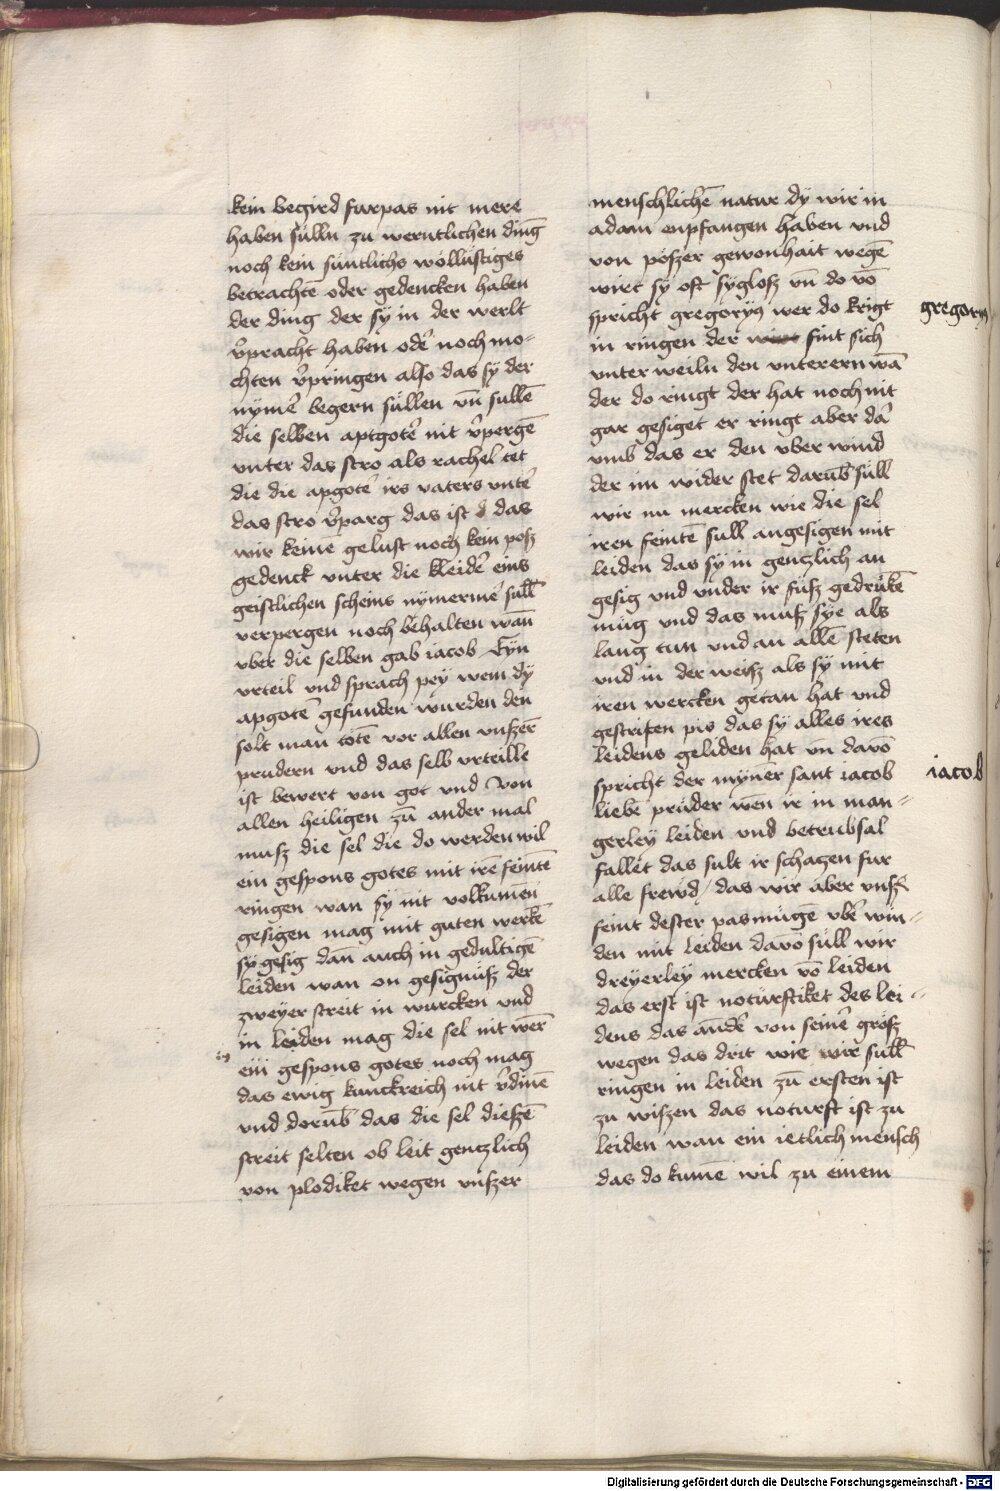 kein begird furpas nit mere
haben sülln zu werntlichen dinḡ
noch kein süntlichs wollüstiges
betrachtē oder gedencken haben
der ding der sy in der werlt
v̄pracht haben odē noch mo-
chten v̄pringen also das sy der
nymē begern süllen vn̄ sullē
die selben aptgotē nit v̄pergē
vnter das stro als rachel tet
die die apgotē irs vaters vntē
das stro v̄parg das ist d das
wir keinē gelust noch kein posz
gedenck vnter die kleidē eins
geistlichen scheins nymermē sull
verpergen noch behalten wan̄
vber die selben gab iacob Eyn
vrteil vnd sprach pey wem dy
apgotē gefunden wurden den
solt man totē vor allen vnszern
prudern vnd das selb vrteille
ist bewert von got vnd von
allen heiligen zū ander mal
musz die sel die do werden wil
ein gespons gotes mit irē feintē
ringen wan sy nit volkumen
gesigen mag mit guten werkē
sy gesig dan̄ auch in gedultigē
leiden wan on gesignusz der
zweyer streit in wurcken vnd
in leiden mag die sel nit wer̄
ein gespons gotes noch mag
das ewig kunckreich nit v̄dinē
vnd dorūb das die sel dieszē
streit selten ob leit gentzlich
von plodiket wegen vnszer
menschlichē natur dy wir in
adam enpfangen haben vnd
von poszer gewonhait wegē
wirt sy oft syglosz vn̄ do vō
spricht gregoryus wer do krigt
in ringen der wirt sint sich
vnter weiln den vnterern wā
der do ringt der hat noch nit
gar gesiget er ringt aber dā
vmb das er den vber wind
der im wider stet darūb süll
wir nu mercken wie die sel
iren feintē sull angesigen mit
leiden das sy in gentzlich an
gesig vnd vnder ir füsz gedrukē
müg vnd das musz sye als
lang tun vnd an allē steten
vnd in der weisz als sy mit
iren wercken getan hat vnd
gestriten pis das sy alles ires
leidens geliden hat vn̄ davō
spricht der mynner sant iacob
liebē prüder wen ir in man-
gerley leiden vnd betrubsal
fallet das sult ir schatzen fur
alle frewd / das wir aber vnsz̄
feint dester pas mügē vbē win-
den mit leiden davō süll wir
dreyerley mercken vō leiden
das erst ist notürftiket des lei-
dens das andē von seinē grosz
wegen das drit wie wir sull
ringen in leiden zū ersten ist
zu wiszen das noturft ist zu
leiden wan ein ietlich mensch
das do kumē wil zu einem
gregoryus
iacob
Digitalisierung gefördert durch die Deutsche Forschungsgemeinschaft - DFG